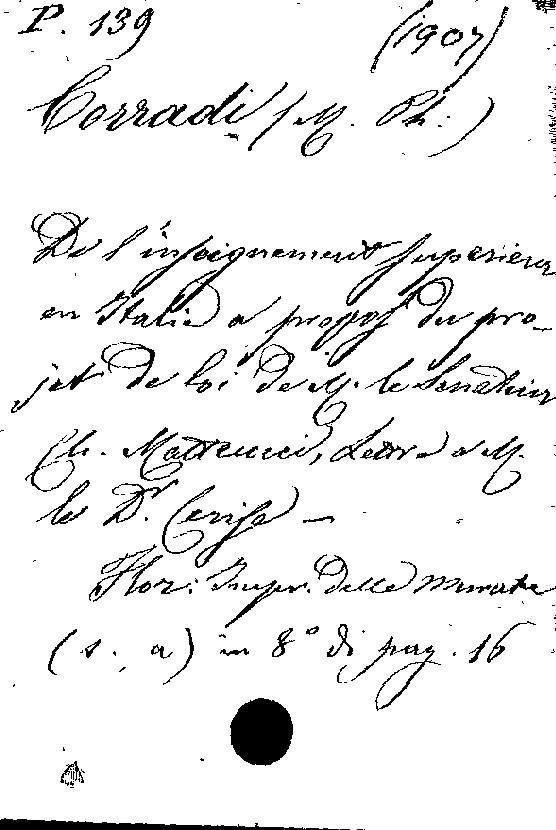 P. 139 (1907)
Corradi (M. Ph:)
De l'inseignement superieur
en Italie a propos du pro-
jet de loi de M. le Senateur
Ch. Matteucci, Lettre a M.
le Dr. Cerise —
Flor: Impr. delle Murate
(s. a) in 8° di pag. 16